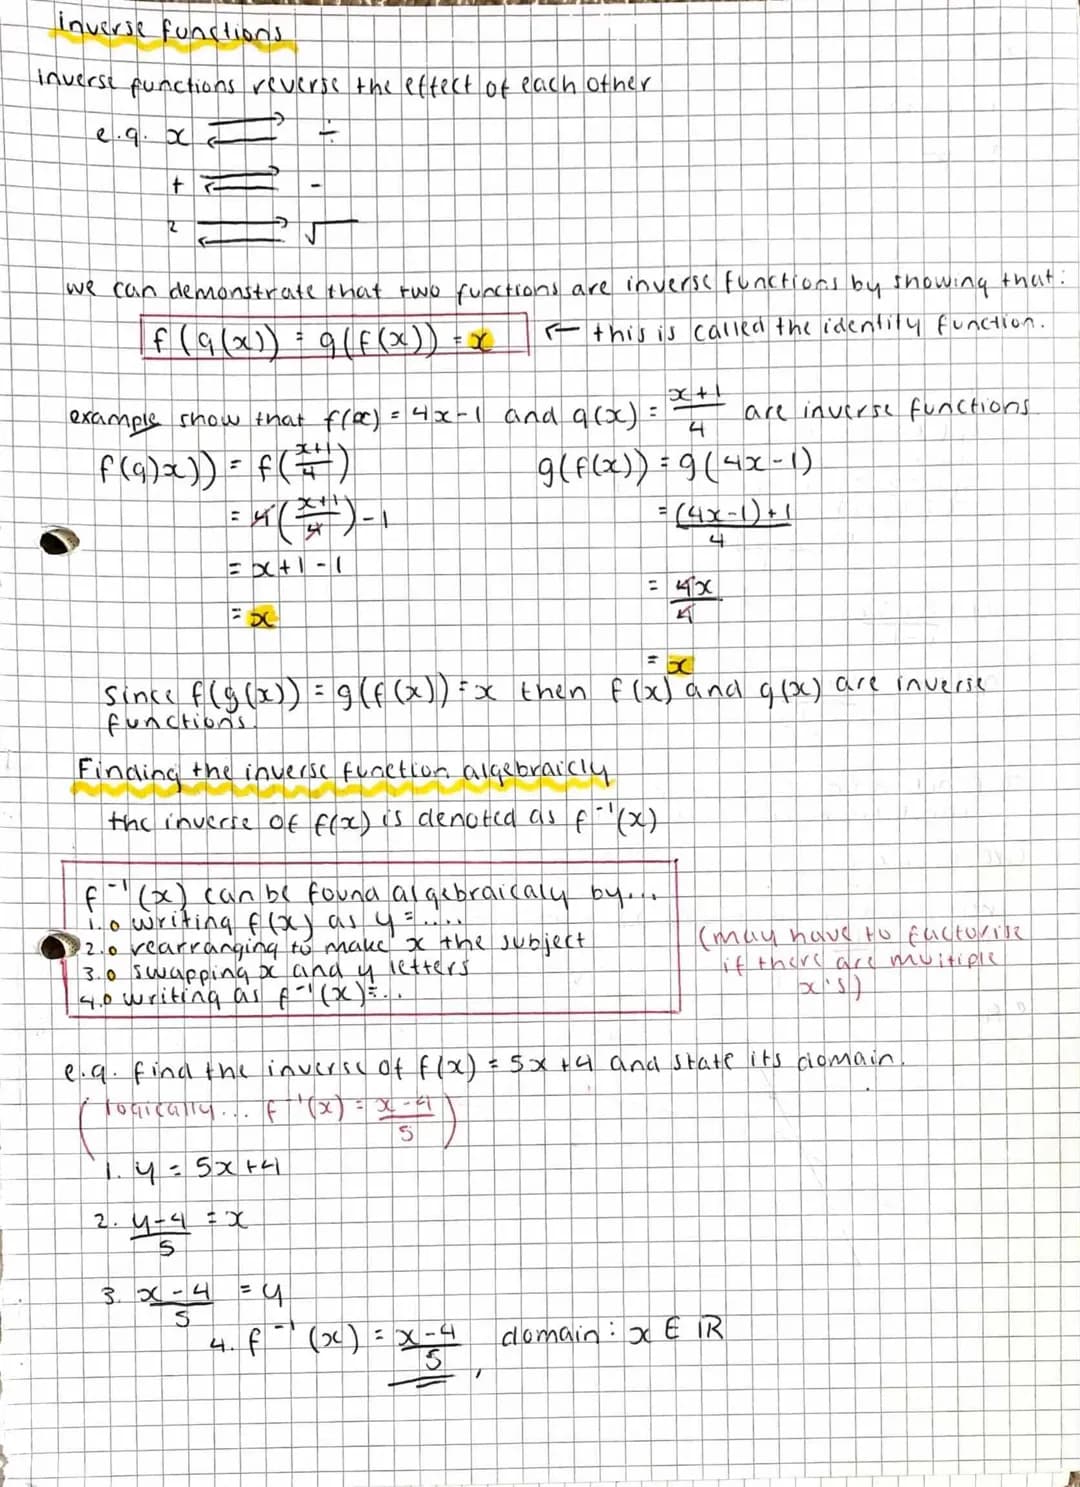 inverse functions
inverse functions reverse the effect of each other
e.g. x ⇄ ÷
+ ⇄ -
² ⇄ √
we can demonstrate that two functions are inverse functions by showing that:
f(g(x)) = g(f(x)) = x ← this is called the identity function.
example show that f(x) = 4x-1 and g(x) = (x+1)/4 are inverse functions
f(g)x)) = f((x+1)/4) g(f(x)) = g(4x-1)
= 4((x+1)/4)-1 = ((4x-1)+1)/4
= x+1-1 = 4x/4
= x = x
since f(g(x)) = g(f(x)) = x then f(x) and g(x) are inverse
functions.
Finding the inverse function algebraicly
the inverse of f(x) is denoted as f⁻¹(x)
f⁻¹(x) can be found algebraicaly by...
1.o writing f(x) as y = .....
2.o rearranging to make x the subject
3.o swapping x and y letters
4.o writing as f⁻¹(x)=...
(may have to factorise
if there are multiple
x's)
e.g. find the inverse of f(x) = 5x +4 and state its domain.
(logically... f⁻¹(x) = (x-4)/5)
1. y = 5x+4
2. (y-4)/5 = x
3. (x-4)/5 = y
4. f⁻¹(x) = (x-4)/5 , domain: x ∈ ℝ